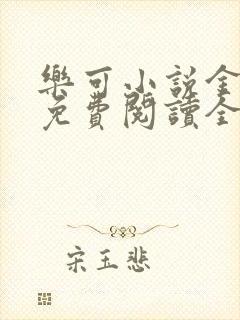 樂可小說全
免費閱讀全
宋玉悲